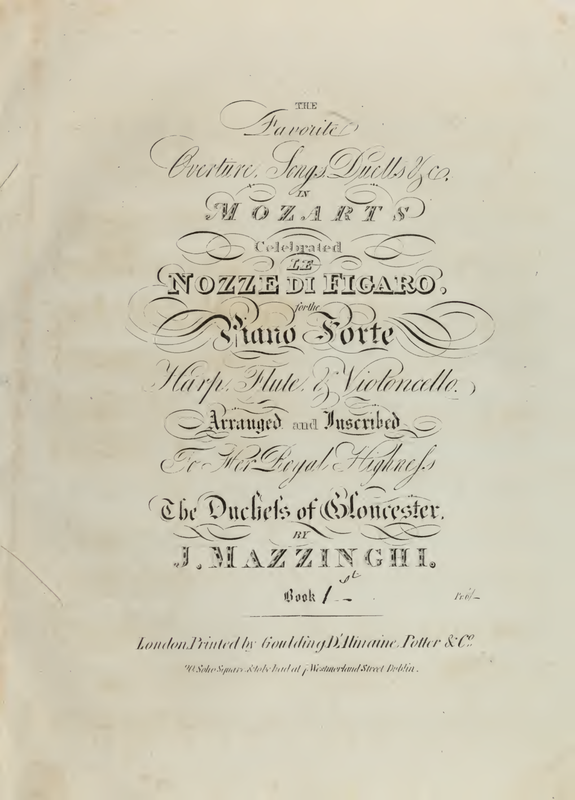 THE
Favorite
Overture, Songs, Duetts &c.
IN
MOZARTS
Celebrated
LE
NOZZE DI FIGARO,
for the
Piano Forte
Harp, Flute, & Violoncello.
Arranged and Inscribed
To Her Royal Highness
The Duchess of Gloucester,
BY
J. MAZZINGHI.
Book 1st
London, Printed by Goulding, D'Almaine, Potter & Co.
20, Soho Square, & to be had at 7, Westmorland Street, Dublin.